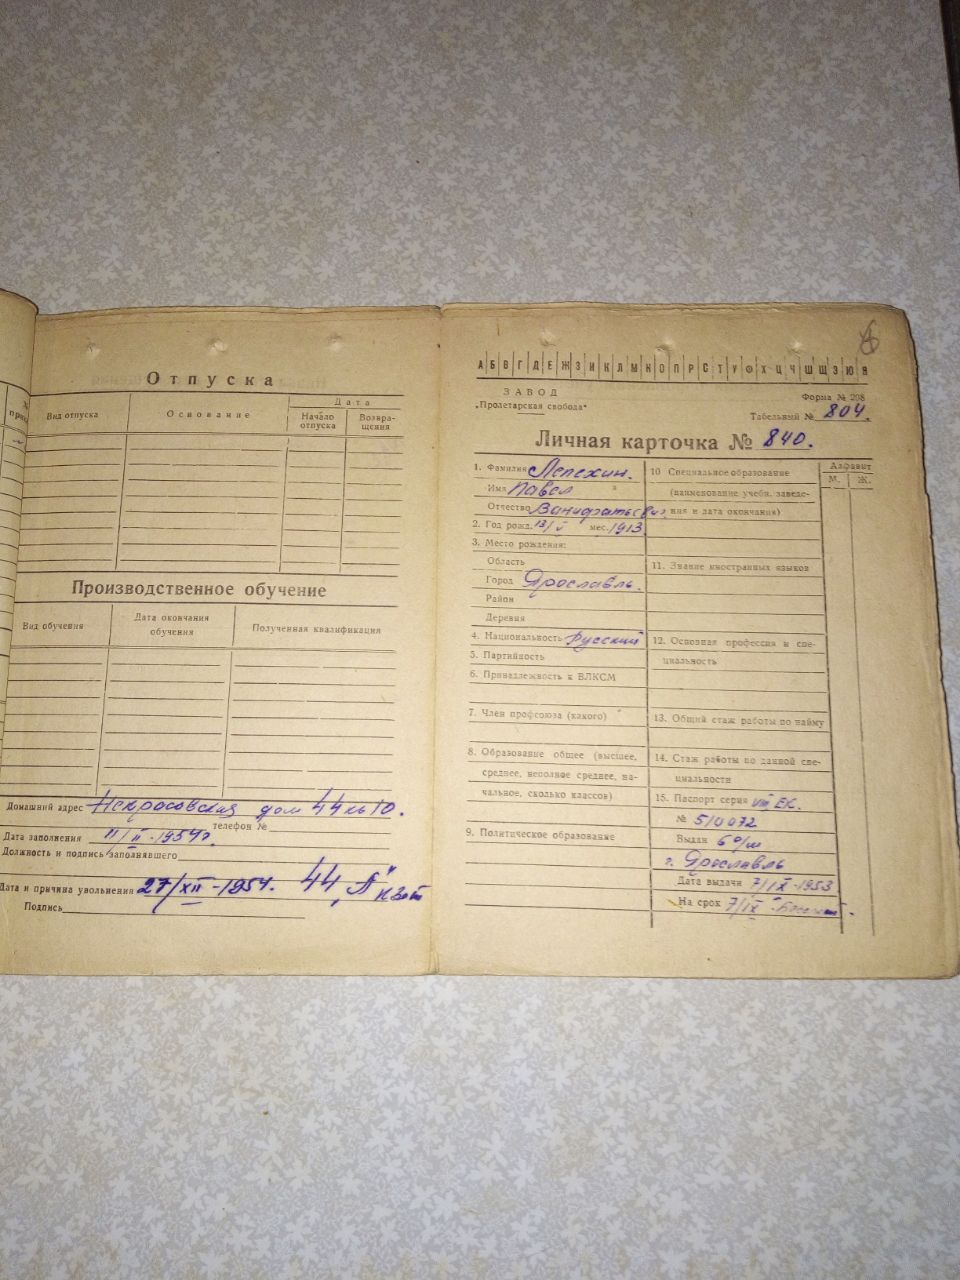 Отпуска
Вид отпуска
Основание
Дата
Начало отпуска
Возвра-
щения
Производственное обучение
Вид обучения
Дата окончания
обучения
Полученная квалификация
Домашний адрес Некрасовская дом 44 кв 10.
телефон №
Дата заполнения 11/II-1954г.
Должность и подпись заполнявшего
Дата и причина увольнения 27/XII-1954. 44 „А" КЗоТ
Подпись
А Б В Г Д Е Ж З И К Л М Н О П Р С Т У Ф Х Ц Ч Ш Щ Э Ю Я
ЗАВОД
„Пролетарская свобода"
Форма № 208
Табельный № 804.
Личная карточка № 840.
1. Фамилия Лепехин.
Имя Павел
Отчество
2. Год рожд. 13/V мес. 1913
3. Место рождения:
Область
Город Ярославль.
Район
Деревня
4. Национальность Русский
5. Партийность
6. Принадлежность к ВЛКСМ
7. Член профсоюза (какого)
8. Образование общее (высшее,
среднее, неполное среднее, на-
чальное, сколько классов)
9. Политическое образование
10 Специальное образование
(наименование учебн. заведе-
ния и дата окончания)
11. Знание иностранных языков
12. Основная профессия и спе-
циальность
13. Общий стаж работы по найму
14. Стаж работы по данной спе-
циальности
15. Паспорт серия VIII ЕК.
№ 510072
Выдан 6 о/м
г. Ярославль
Дата выдачи 7/IX-1953.
На срок 7/IX
Алфавит
М. Ж.